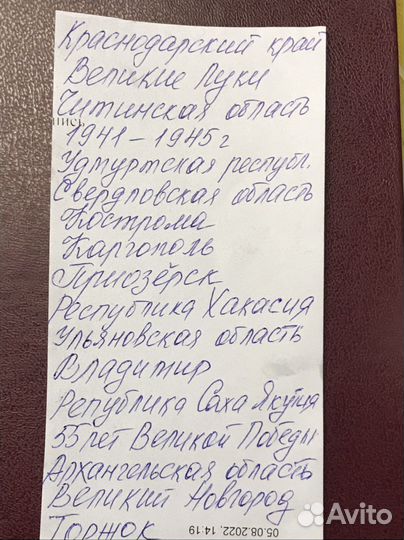 Краснодарский край
Великие Луки
Читинская область
1941 – 1945 г
Удмуртская республ.
Свердловская область
Кострома
Каргополь
Приозёрск
Республика Хакасия
Ульяновская область
Владимир
Репулика Саха Якутия
55 лет Великой Победы
Архангельская область
Великий Новгород
Торжок
05.08.2022, 14:19
Avito